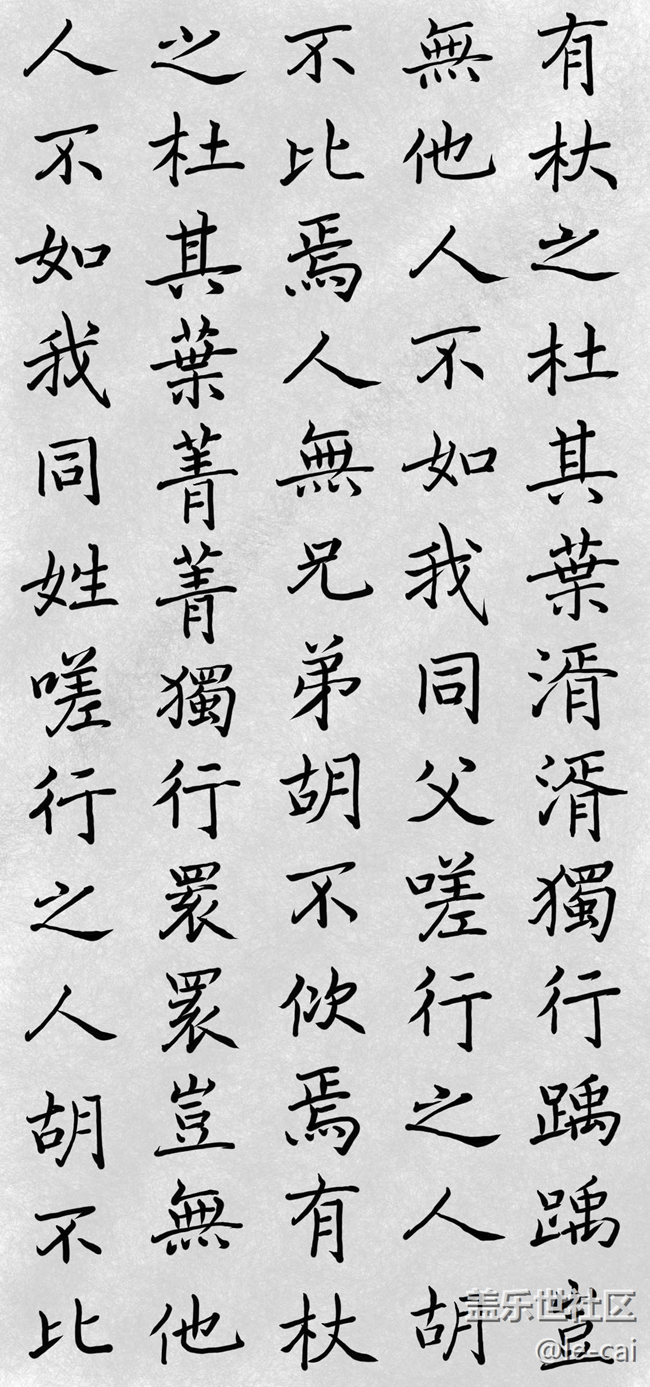 有杕之杜其葉湑湑獨行踽踽豈
無他人不如我同父嗟行之人胡
不比焉人無兄弟胡不佽焉有杕
之杜其葉菁菁獨行睘睘豈無他
人不如我同姓嗟行之人胡不比
盖乐世社区
@le-cai